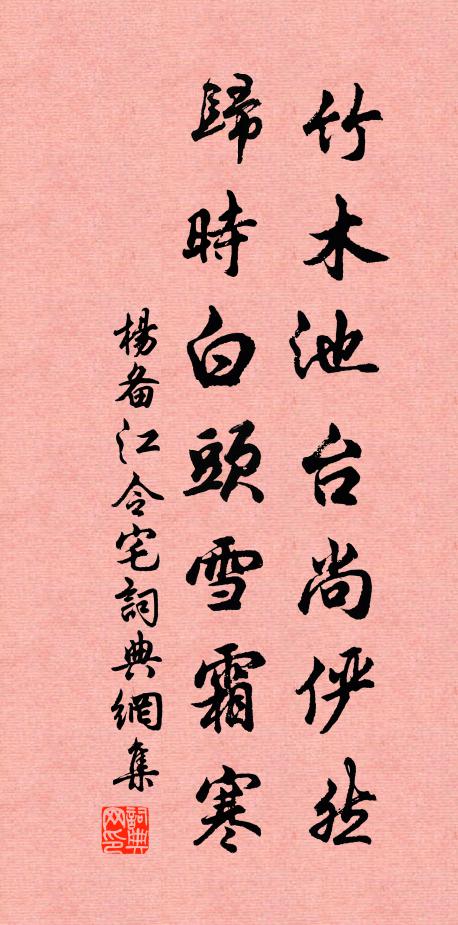 竹木池台尚俨然
歸時白頭雪霜寒
楊备江令宅詞典網集
詞典网印